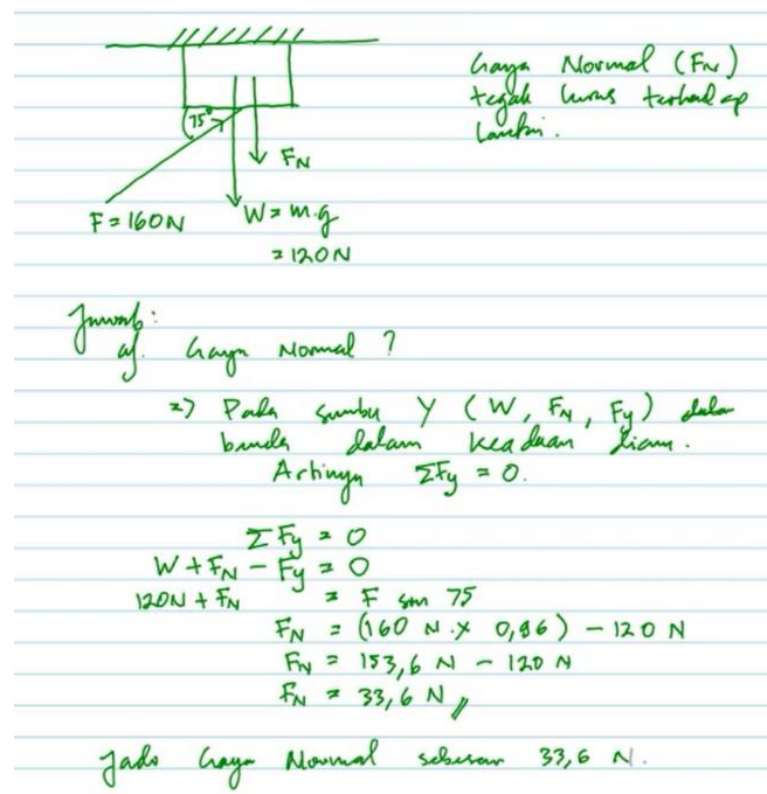 Gaya Normal (FN)
tegak lurus terhadap
Lantai.
75°
FN
F = 160 N
W = m.g
= 120 N
Jawab:
a). Gaya Normal ?
=> Pada sumbu Y (W, FN, Fy) dalam
benda dalam keadaan diam.
Artinya ΣFy = 0.
ΣFy = 0
W + FN - Fy = 0
120N + FN = F sin 75
FN = (160 N . x 0,96) - 120 N
FN = 153,6 N - 120 N
FN = 33,6 N //
Jadi Gaya Normal sebesar 33,6 N.